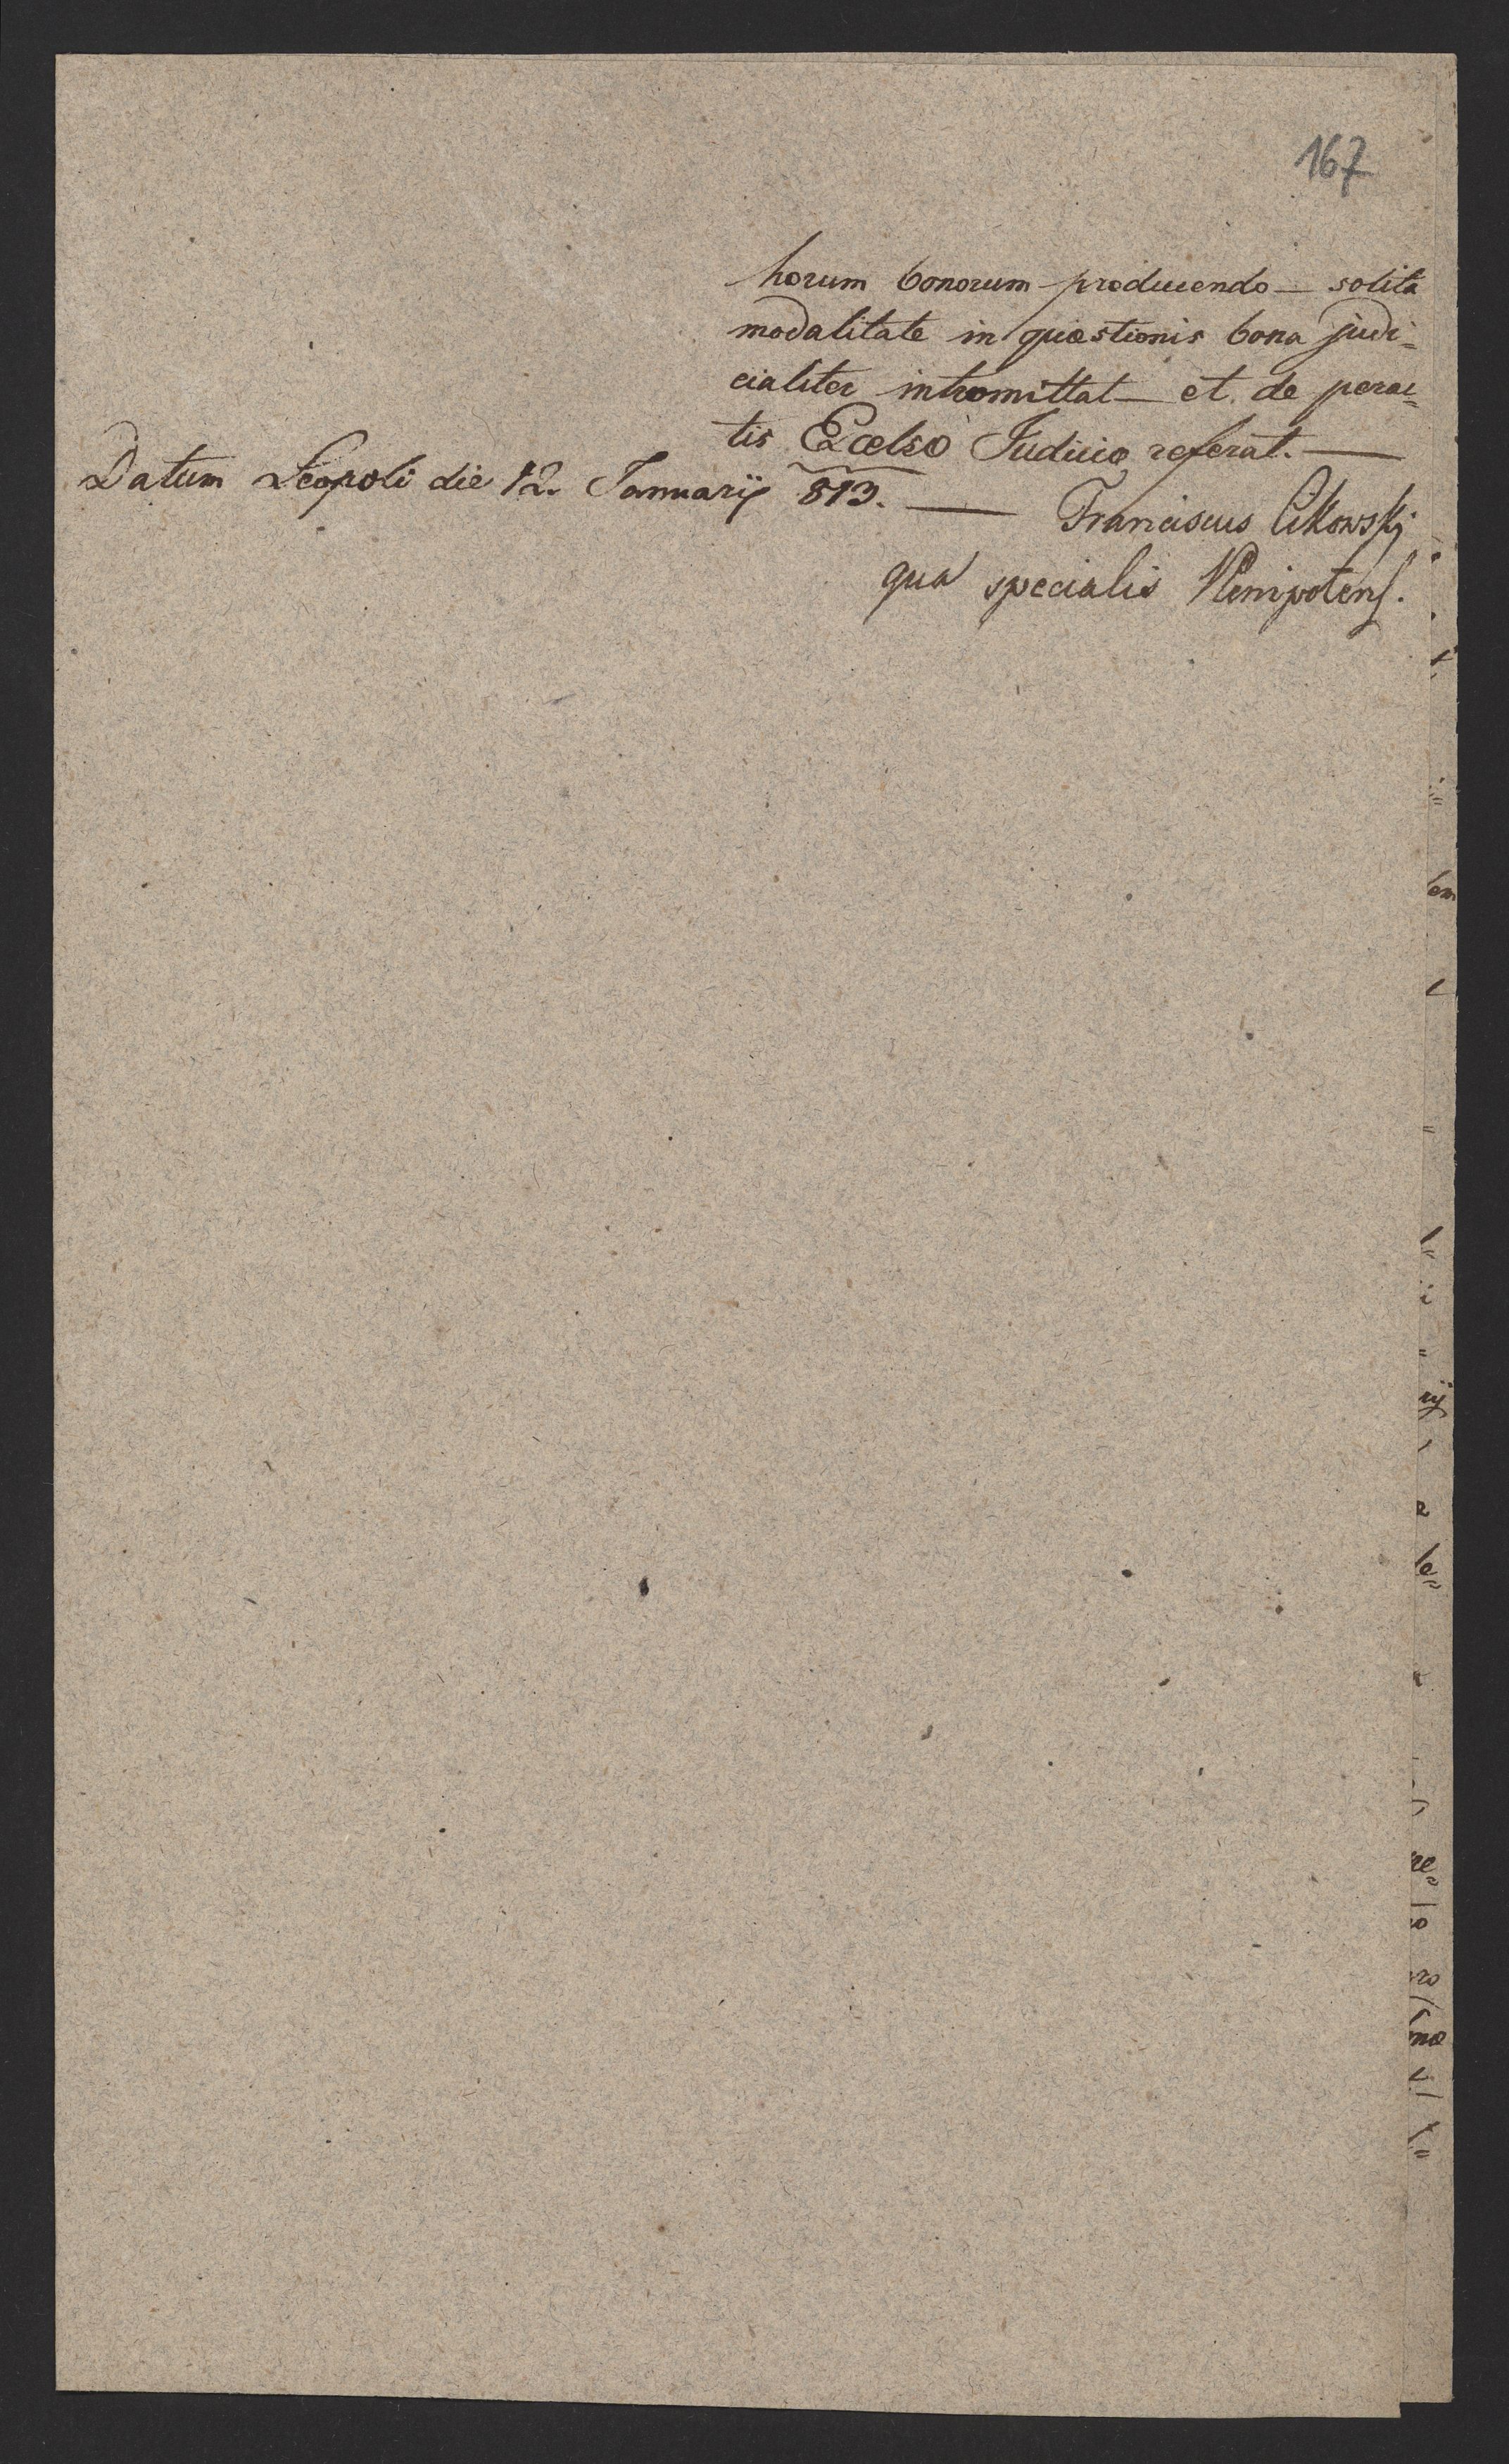 167
horum bonorum producendo — solita
modalitate in quæstionis bona judi=
cialiter intromittat — et de perac=
tis Excelso Judicio referat. —
Datum Leopoli die 12. Januarij 813. —
Franciscus Cikowski
qua specialis Plenipotens.